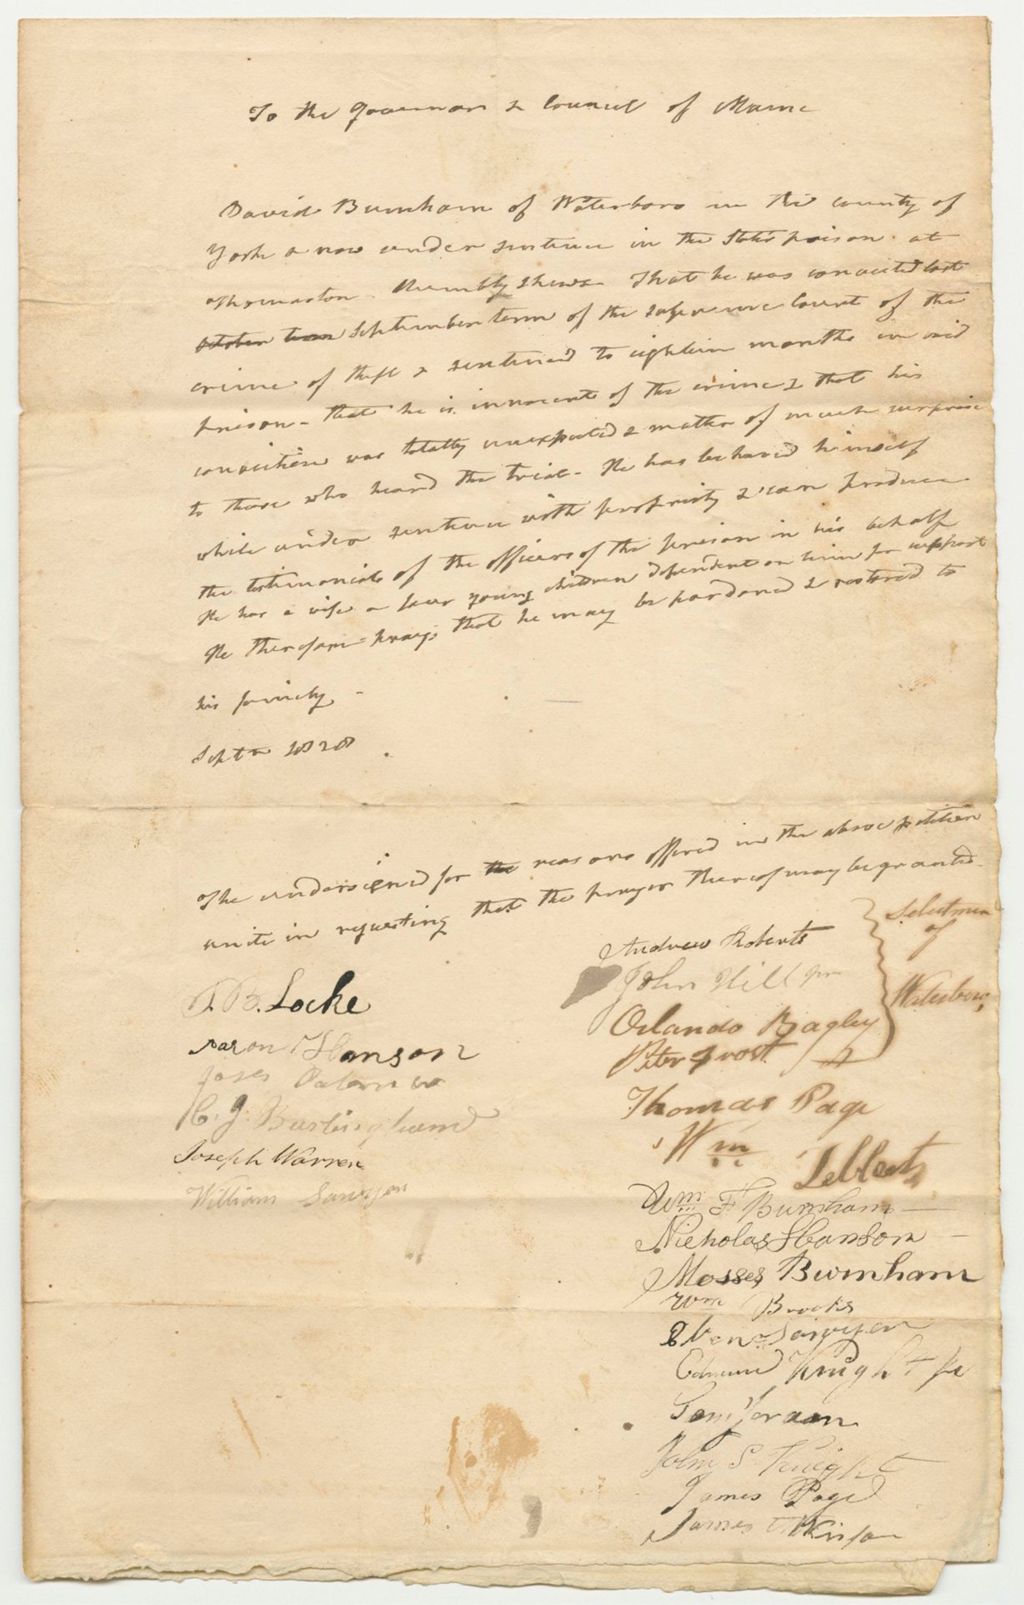 To the Governor & Council of Maine
David Burnham of Waterboro in the county of
York & now under sentence in the States prison at
Thomaston Humbly shews That he was convicted last
october term September term of the supreme Court of the
crime of theft & sentenced to eighteen months in said
prison - that he is innocent of the crime & that his
conviction was totally unexpected & matter of much surprise
to those who heard the trial - He has behaved himself
while under sentence with propriety & can produce
the testimonials of the officers of the prison in his behalf
He has a wife & four young children dependent on him for support
He therefore prays that he may be pardoned & restored to
his family -
Septr 1828
The undersigned for the reasons offered in the above petition
unite in requesting that the prayer thereof may be granted -
Andrew Roberts
John Hill jnr
Orlando Bagley
Peter Frost
Selectmen
of
Waterboro,
Thomas Page
Wm
Wm F Burnham
Nicholas Hanson
Moses Burnham
Wm Brooks
Ebenr Sawyer
Edmund Knight Jr
John S Knight
James Page
James
B. Locke
Aaron Hanson
C. J. Burlingham
Joseph Warren
William Sawyer